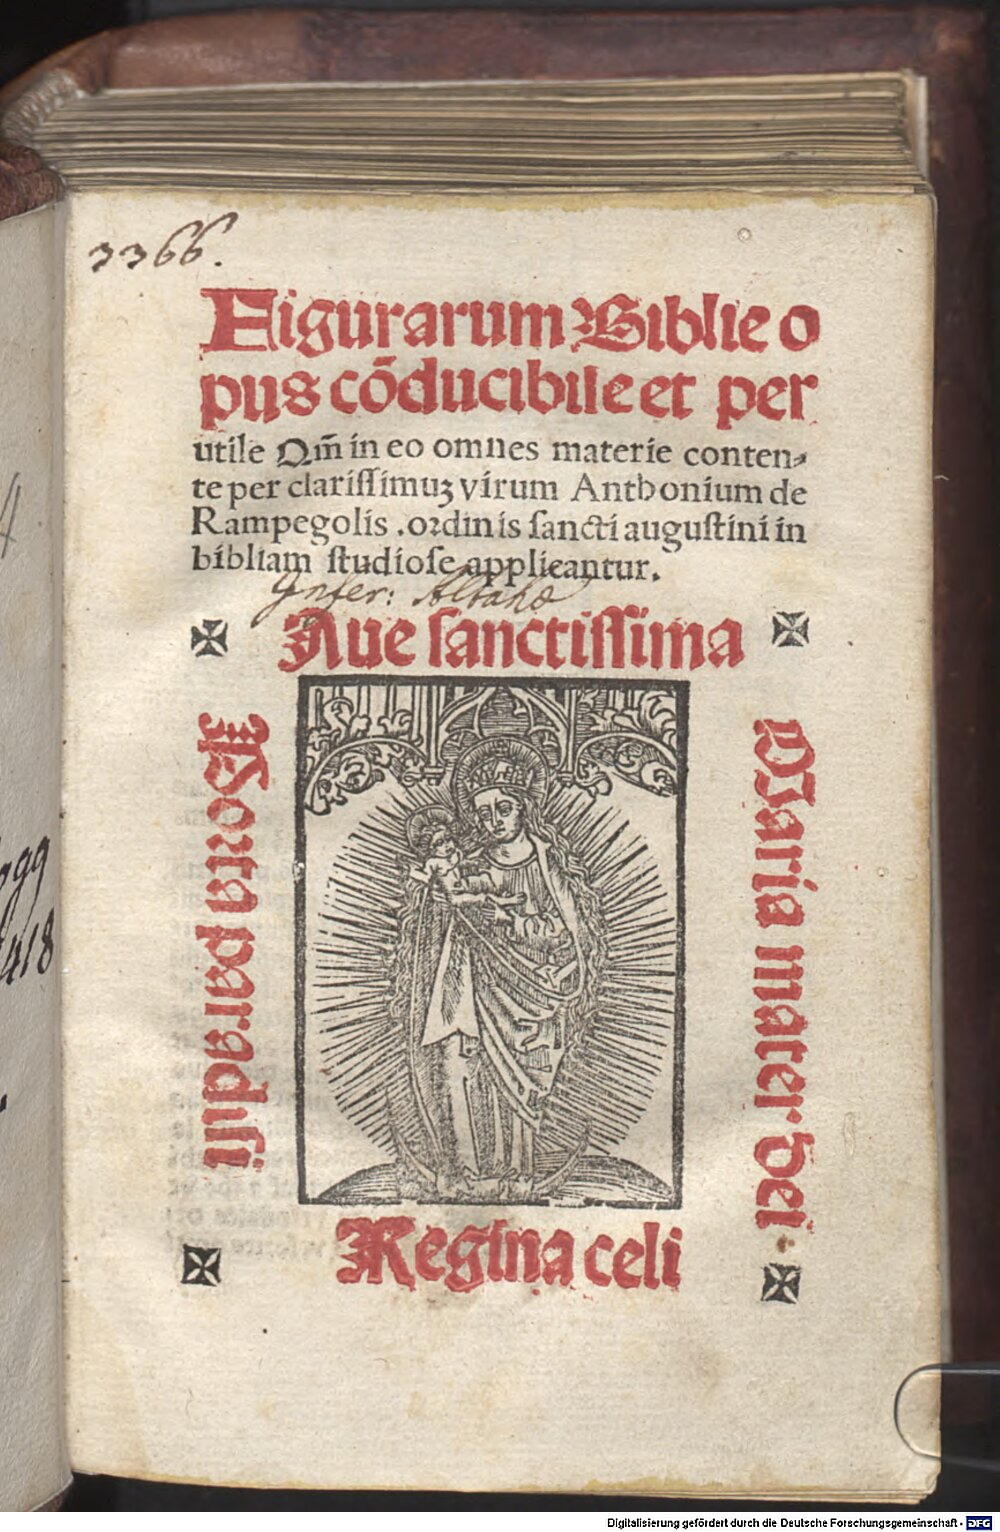 3366.
Figurarum Biblie o
pus cõducibile et per
utile Qm̃ in eo omnes materie conten⸗
te per clarissimuʒ virum Anthonium de
Rampegolis .ordinis sancti augustini in
bibliam studiose applicantur.
Aue sanctissima
Maria mater dei
Regina celi
Porta paradisi
418
Digitalisierung gefördert durch die Deutsche Forschungsgemeinschaft - DFG